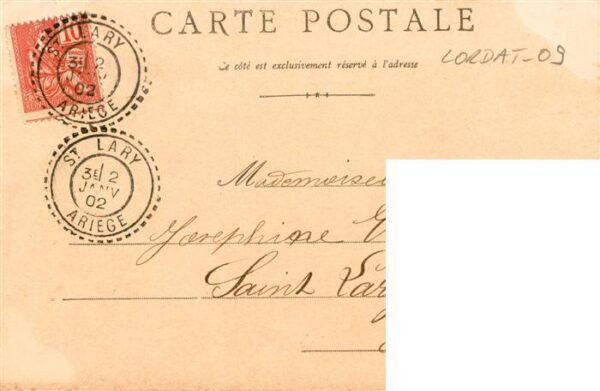 CARTE POSTALE
Ce côté est exclusivement réservé à l'adresse
LORDAT-09
10
ST LARY
3E/ 2
02
ARIEGE
ST LARY
3E/ 2
JANV
02
ARIEGE
Mademoise
Josephine
Saint Lary